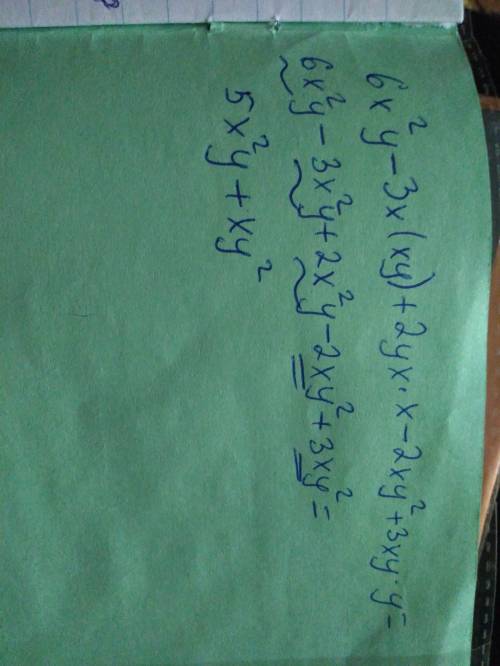 6x²y - 3x(xy) + 2yx·x - 2xy² + 3xy·y =
6x²y - 3x²y + 2x²y - 2xy² + 3xy² =
5x²y + xy²